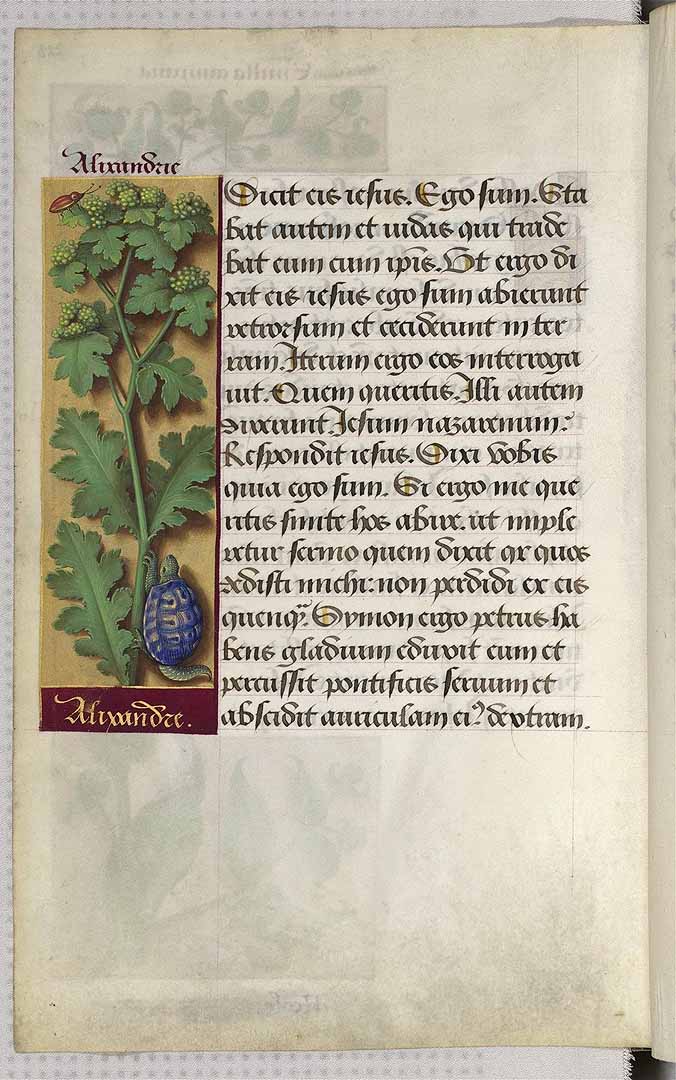 Alixandrie
Dicit eis iesus. Ego sum. Sta
bat autem et iudas qui trade
bat eum cum ip̄is. Ut ergo di
xit eis iesus ego sum abierunt
retrorsum et ceciderunt in ter
ram. Iterum ergo eos interroga
uit. Quem queritis. Illi autem
dixerunt. Iesum nazarenum.
Respondit iesus. Dixi vobis
quia ego sum. Si ergo me que
ritis sinite hos abire. ut imple
retur sermo quem dixit qr quos
dedisti michi: non perdidi ex eis
quenq̄. Symon ergo petrus ha
bens gladium eduxit eum et
percussit pontificis seruum et
abscidit auriculam ei⁹ dextram.
Alixandre.